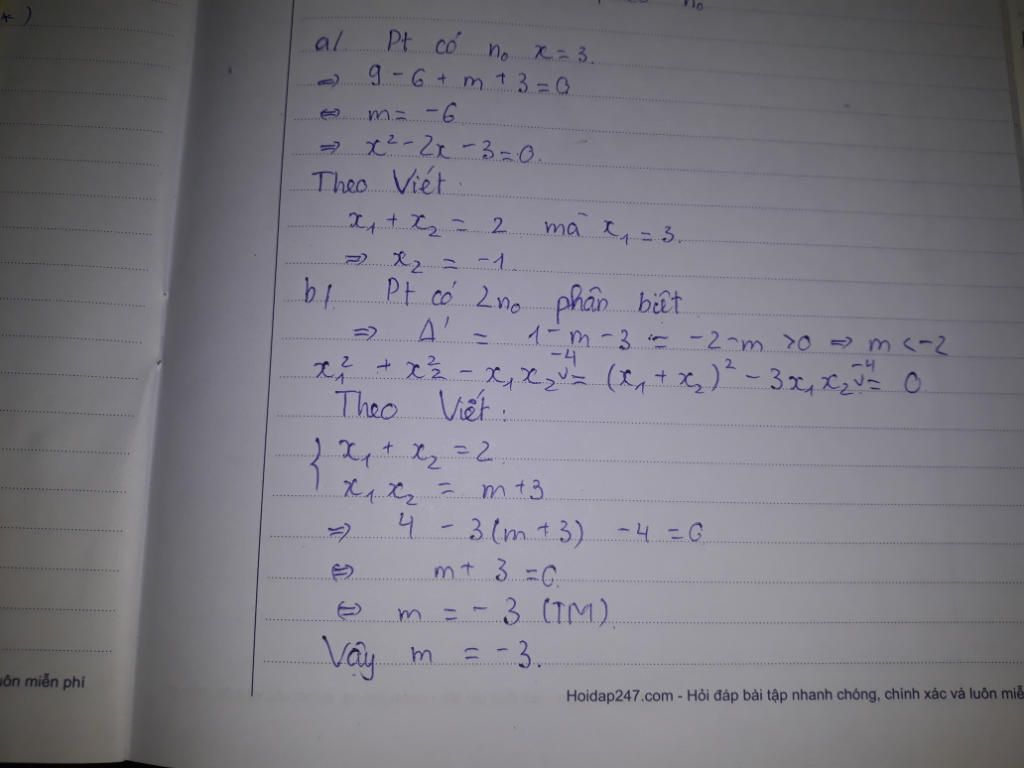 n₀
a/ Pt có n₀ x = 3.
⇒ 9 - 6 + m + 3 = 0
⇔ m = -6
⇒ x² - 2x - 3 = 0.
Theo Viét.
x₁ + x₂ = 2 mà x₁ = 3.
⇒ x₂ = -1.
b/ Pt có 2n₀ phân biệt
⇒ Δ' = 1 - m - 3 = -2 - m > 0 ⇒ m < -2
x₁² + x₂² - x₁x₂ -4 = (x₁ + x₂)² - 3x₁x₂ -4 = 0
Theo Viét:
{ x₁ + x₂ = 2.
x₁x₂ = m + 3
⇒ 4 - 3(m + 3) - 4 = 0
⇔ m + 3 = 0.
⇔ m = -3 (TM)
Vậy m = -3.
uôn miễn phí
Hoidap247.com - Hỏi đáp bài tập nhanh chóng, chính xác và luôn miễ